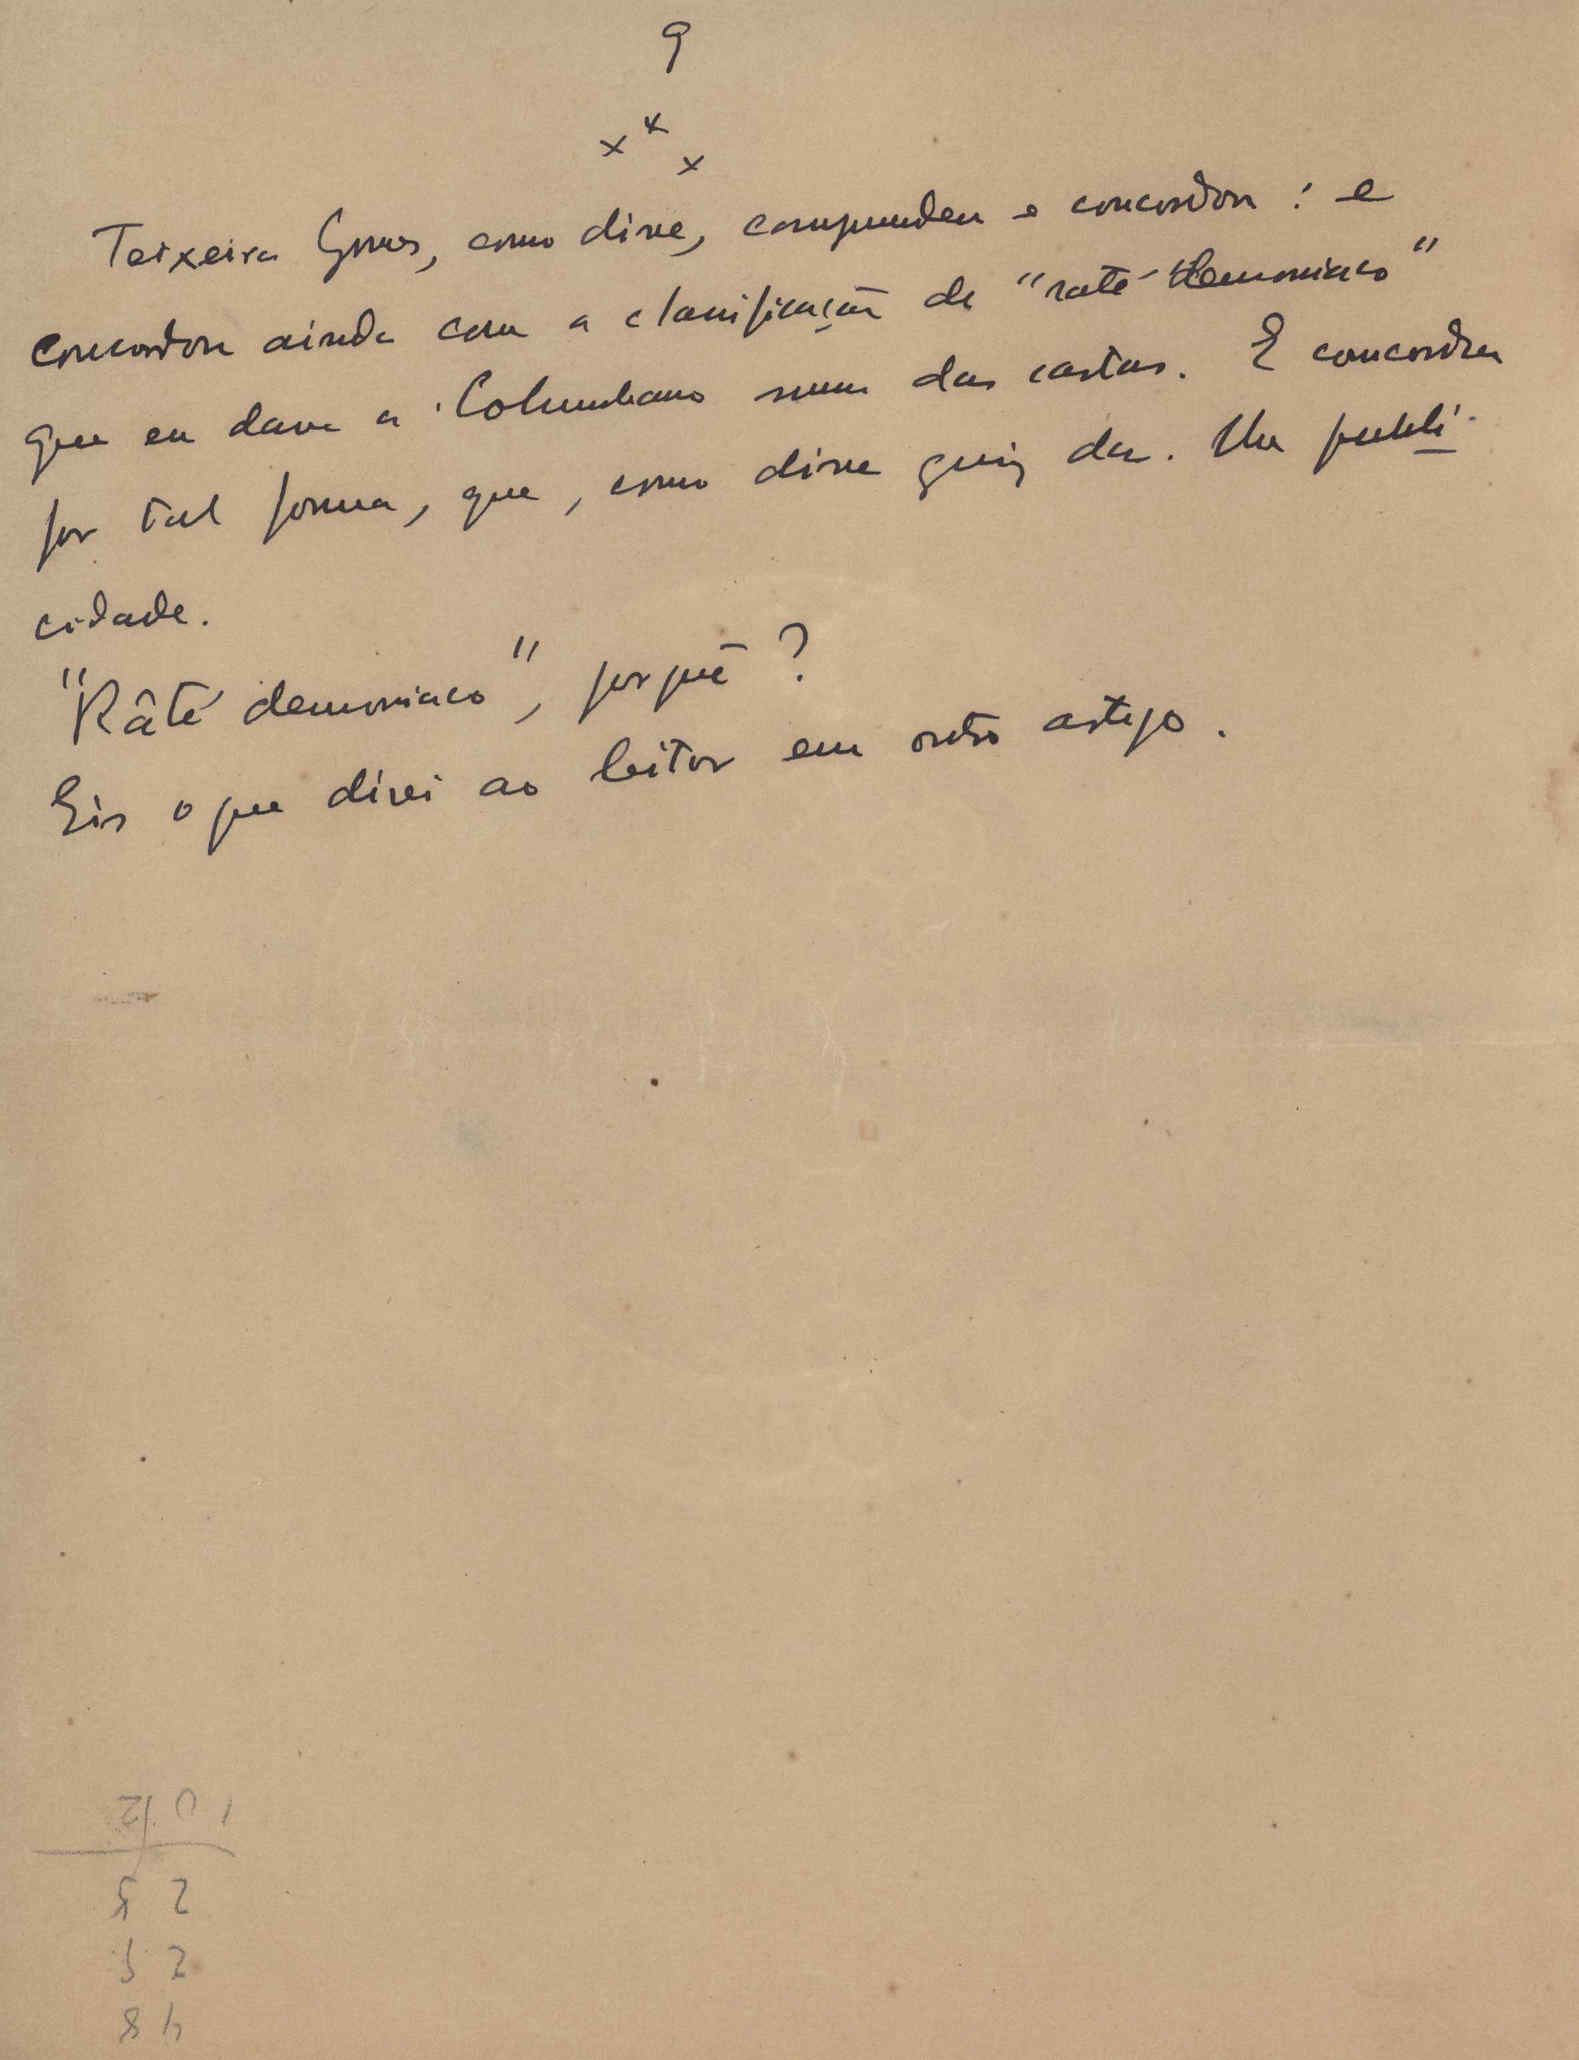 9
x x x
Teixeira Gomes, como disse, compreendeu e concordou: e
concordou ainda com a classificação de "raté demoniaco"
que eu dava a Columbano numa das cartas. E concordou
por tal forma, que, como disse quiz dar-lhe publi-
cidade.
"Râté demoniaco", porquê?
Eis o que direi ao leitor em outro artigo.
48
25